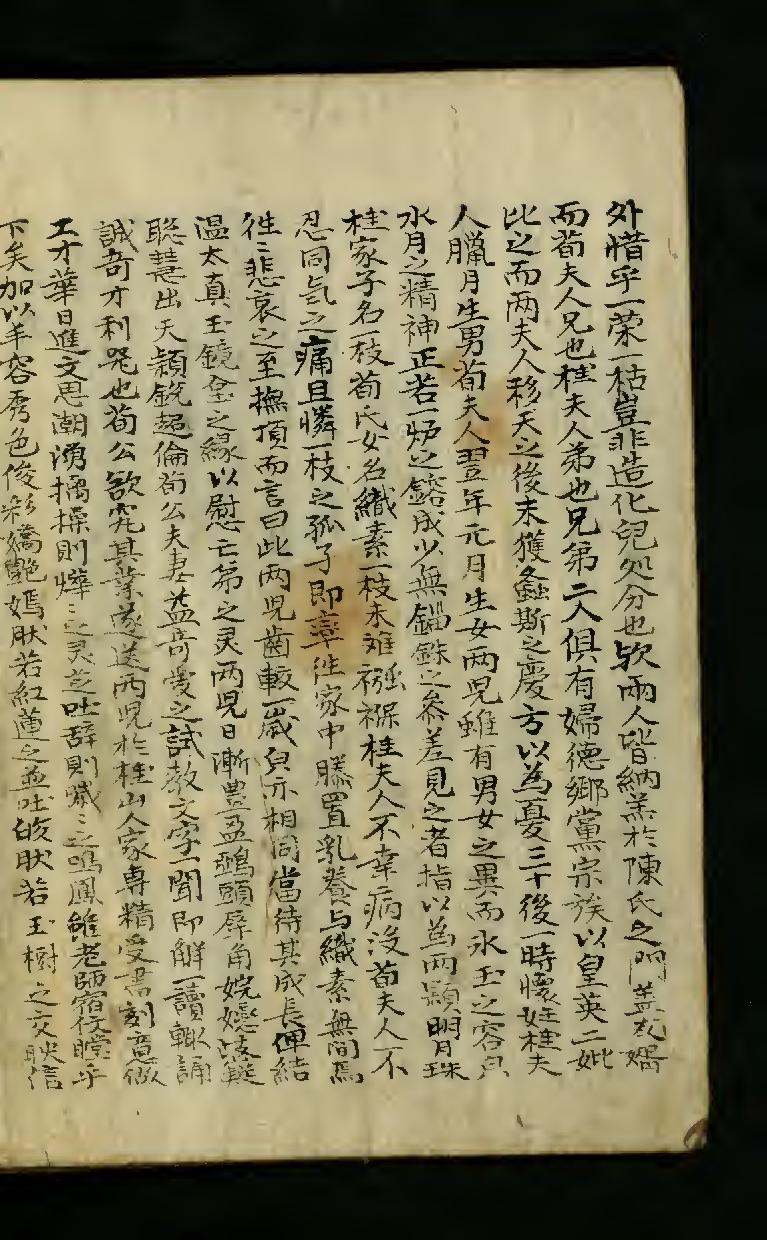 外惜乎一荣一枯豈非造化兒処分也欤兩人皆納羔於陳氏之門盖友婿
而荀夫人兄也桂夫人弟也兄第二人俱有婦德鄉黨宗族以皇英二妣
比之而两夫人移天之後未獲螽斯之慶方以為憂三十後一時懷妊桂夫
人臘月生男荀夫人翌年元月生女两児雖有男女之異而氷玉之容
水月之精神正若一炉之鎔成少無錙銖之叅差見之者指以為两顆明月珠
桂家子名一枝荀氏女名織素一枝未难襁褓桂夫人不幸病没荀夫人不
忍同气之痛且憐一枝之孤子即率往家中媵置乳養与織素無間焉
徃〻悲哀之至撫頂而言曰此两児齒較一歲皃亦相同當待其成長俾結
温太真玉鏡㙜之緣以慰亡第之灵两児日漸豊盈鵶頭犀角婉孌
聡慧出天穎銳超倫荀公夫妻益奇愛之試教文字一聞即觧一讀輙誦
誠奇才利器也荀公欲究其業遂送两児於桂山人家専精受書刻意做
工才華日進文思潮湧摛操則燁〻之灵芝吐辞則噦〻之鳴鳳雖老師宿仗瞠乎
下矣加以丰容秀色俊彩嬌艷嫣肰若紅蓮之並吐皎肰若玉樹之交映信